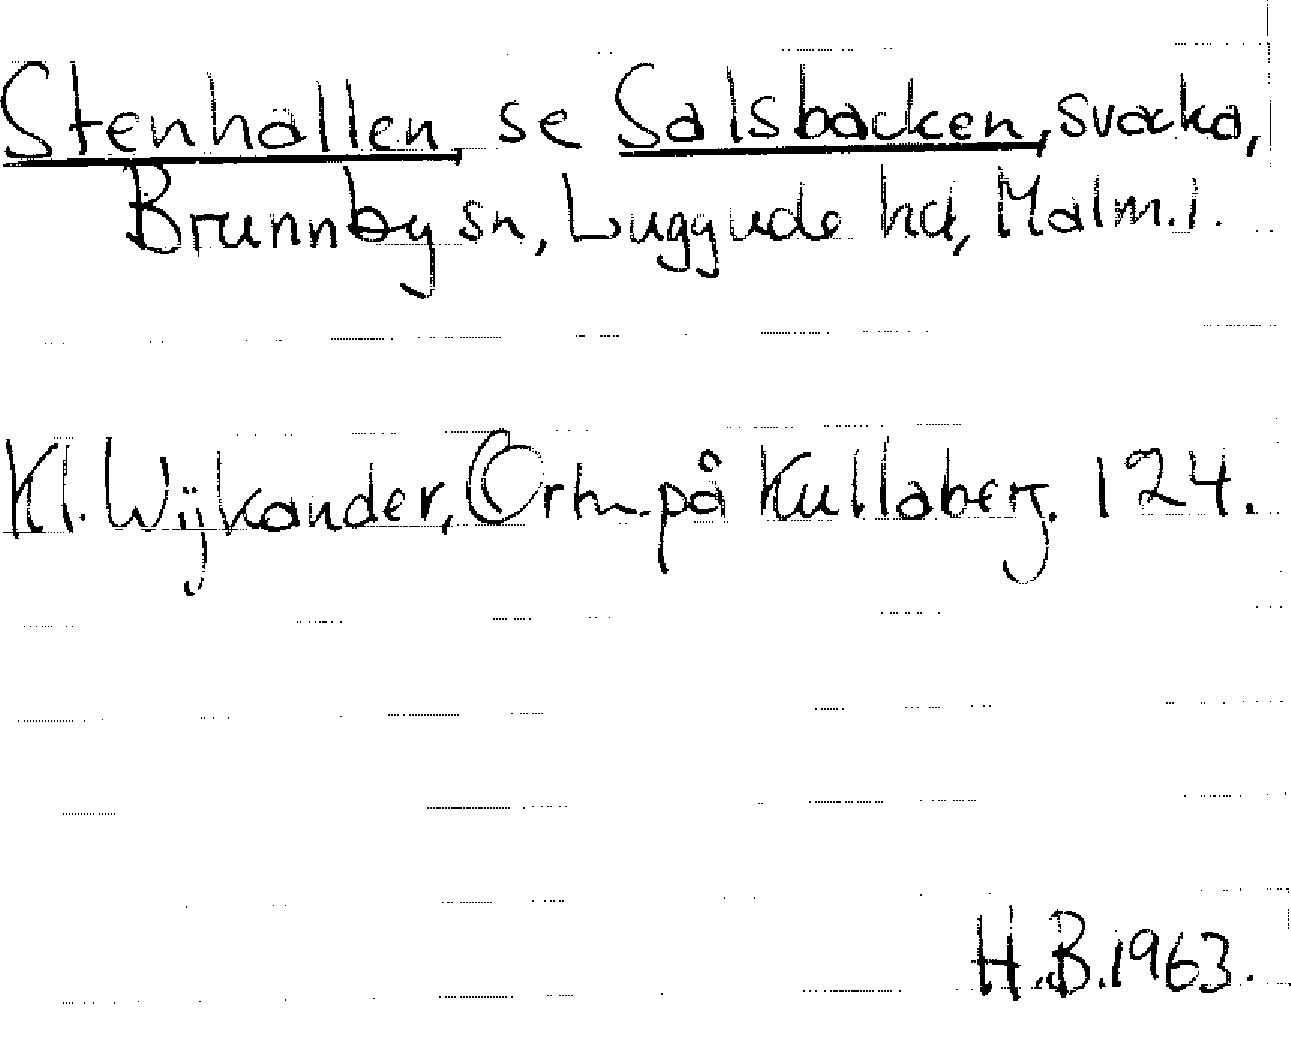 Stenhallen, se Salsbacken, svacka,
Brunnby sn, Luggude hd, Malm.l.
Kl. Wijkander, Ortn. på Kullaberg. 124.
H.B. 1963.